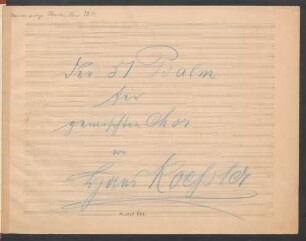 Der 51 Psalm
für
gemischten Chor
von
Hans Koessler